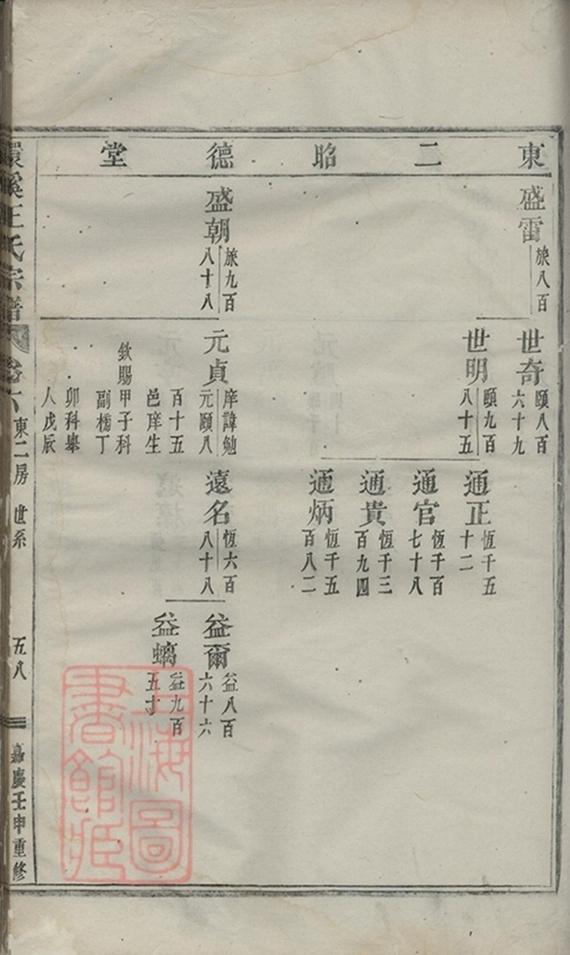 東二昭德堂
盛雷
旅八百
世奇
頤八百
六十九
世明
頤九百
八十五
通正
恆千五
十二
通官
恆千百
七十八
通貴
恆千三
百九四
通炳
恆千五
百八二
盛朝
旅九百
八十八
元貞
庠諱勉
元頤八
百十五
邑庠生
欽賜甲子科
副榜丁
卯科舉
人戊辰
遠名
恆六百
八十八
益爾
益八百
六十六
益螭
益九百
五十
環溪王氏宗譜
卷六
東二房
世系
五八
嘉慶壬申重修
上海圖
書館藏